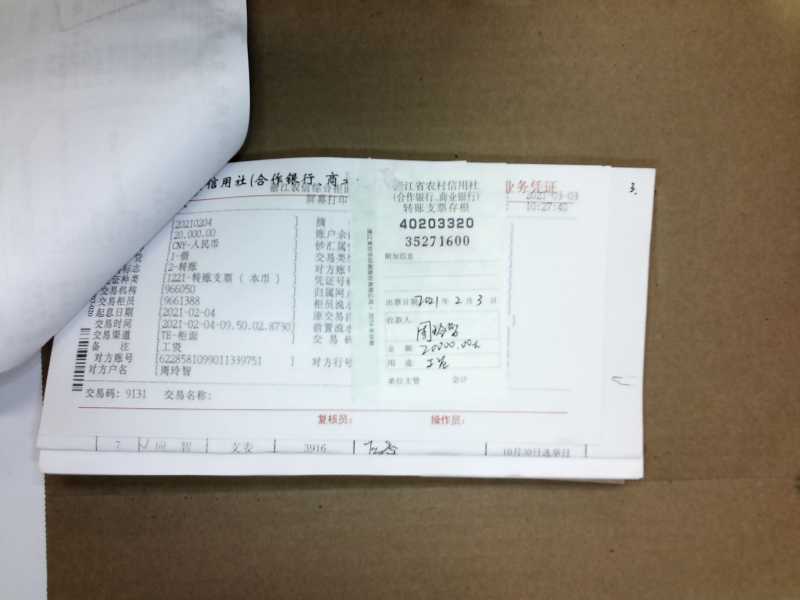 信用社(合作银行、商
业务凭证
浙江农信综合柜面
屏幕打印
2021-03-03
10:27:40
3.
[20210204
[20,000.00
[CNY-人民币
[1-借
易标志 [2-转账
证种类 [1221-转账支票 ( 本币 ) ]
交易机构 [966050
交易柜员 [9661388
起息日期 [2021-02-04
交易时间 [2021-02-04-09.50.02.8730
交易渠道 [TE-柜面
备 注 [工资
对方账号 [6228581099011339751 ]
对方户名 [周玲智
摘
账户余
钞汇属
交易类
对方账号
凭证号
归属网
柜员流
前置流水
交 易 码
对方行号
交易码: 9131 交易名称:
复核员: 操作员:
浙江省农村信用社
(合作银行、商业银行)
转账支票存根
40203320
35271600
附加信息
出票日期 2021 年 2 月 3 日
收款人:
周玲智
金 额: 20000.00
用 途: 工资
单位主管 会计
7 智 支委 3916
10月30日选举日